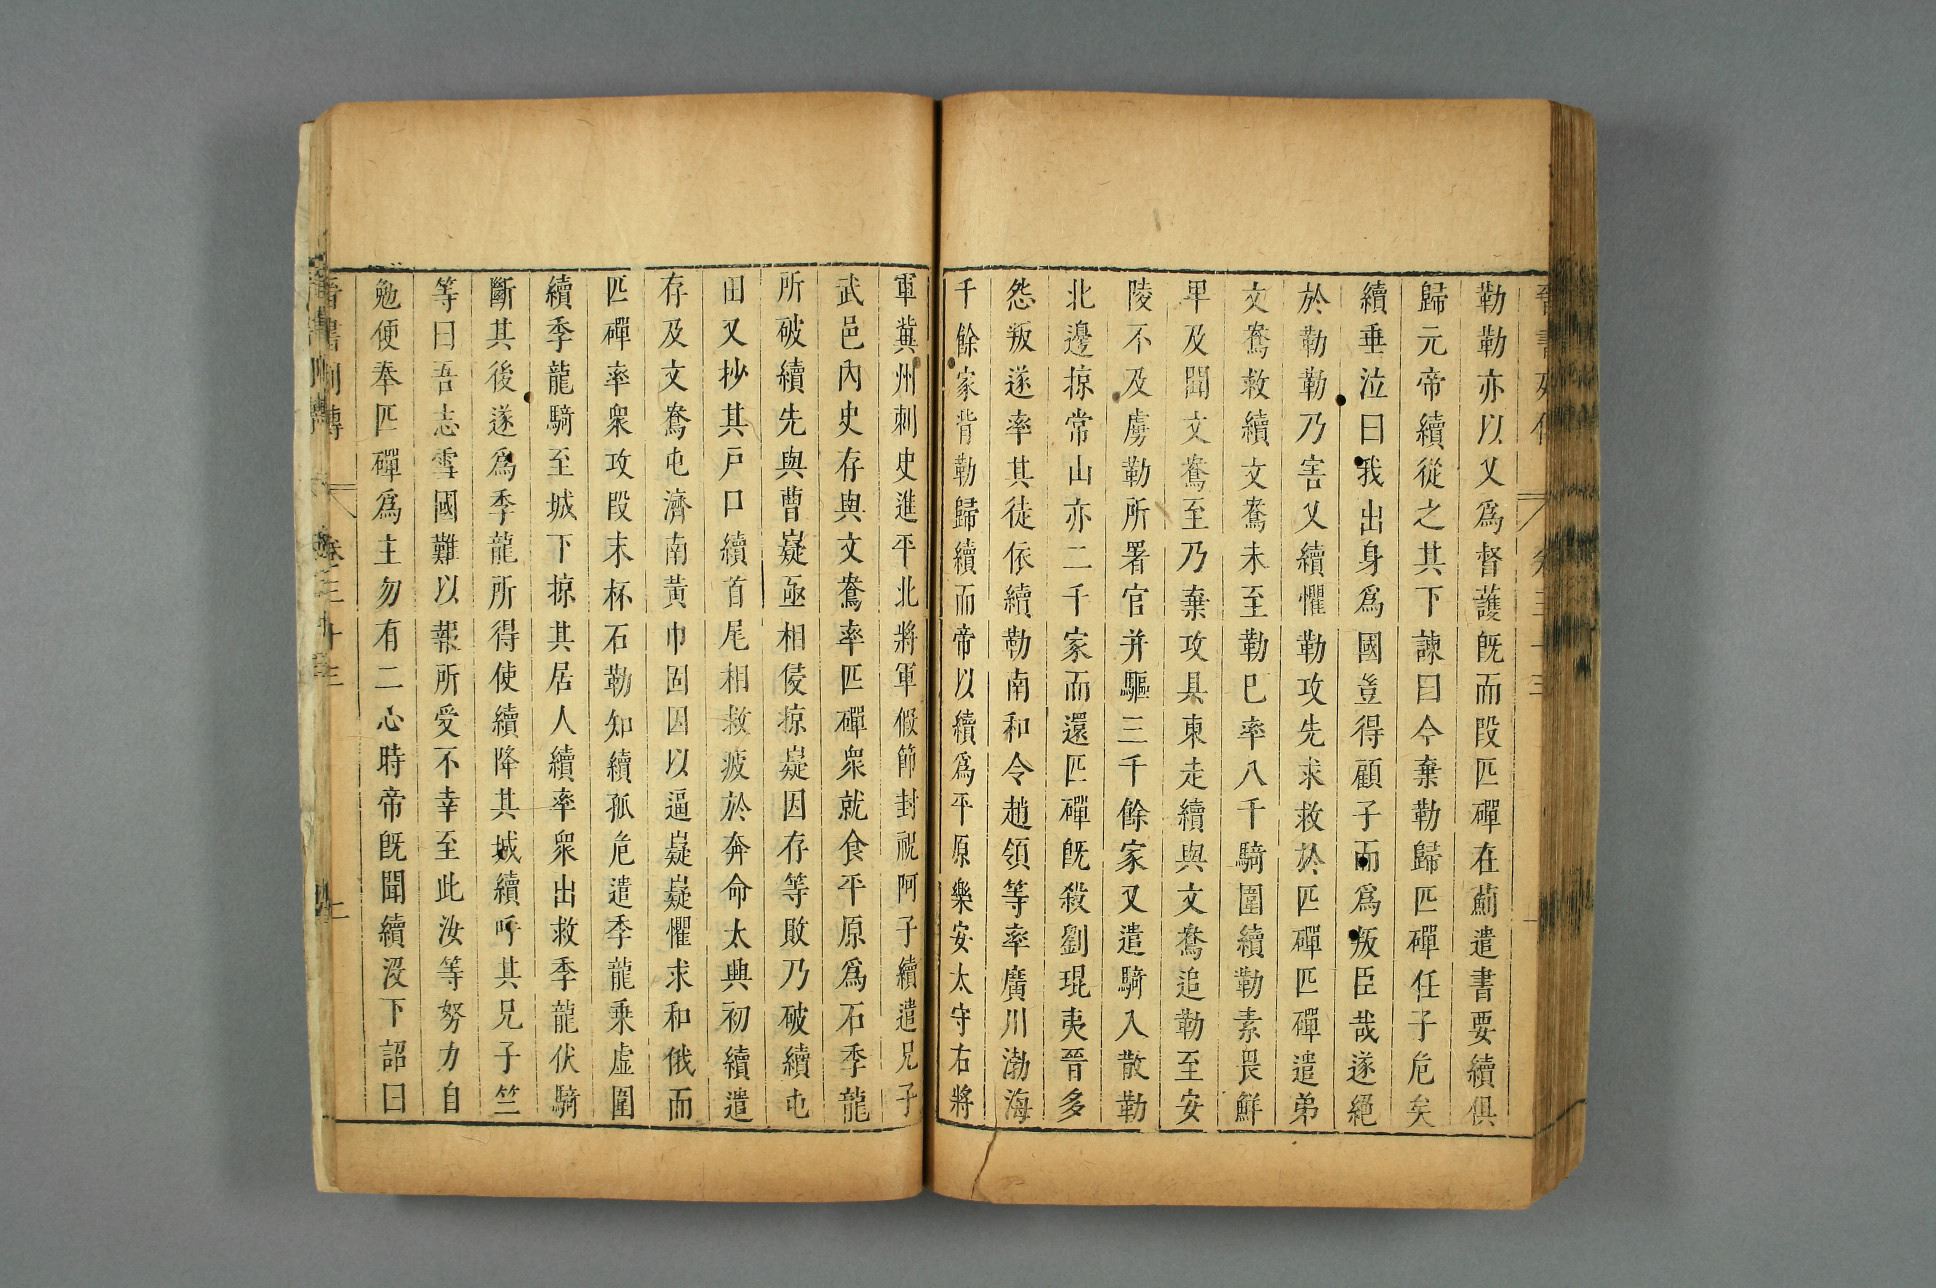 勒勒亦以乂爲督護旣而段匹磾在薊遣書要續俱
歸元帝續從之其下諫曰今棄勒歸匹磾任子危矣
續垂泣曰我出身爲國豈得顧子而爲叛臣哉遂絕
於勒勒乃害乂續懼勒攻先求救於匹磾匹磾遣弟
文鴦救續文鴦未至勒已率八千騎圍續勒素畏鮮
卑及聞文鴦至乃棄攻具東走續與文鴦追勒至安
陵不及虜勒所署官并驅三千餘家又遣騎入散勒
北邊掠常山亦二千家而還匹磾旣殺劉琨夷晉多
怨叛遂率其徒依續勒南和令趙領等率廣川渤海
千餘家背勒歸續而帝以續爲平原樂安太守右將
軍冀州刺史進平北將軍假節封祝阿子續遣兄子
武邑內史存與文鴦率匹磾衆就食平原爲石季龍
所破續先與曹嶷亟相侵掠嶷因存等敗乃破續屯
田又抄其戶口續首尾相救疲於奔命太興初續遣
存及文鴦屯濟南黃巾固因以逼嶷嶷懼求和俄而
匹磾率衆攻段末杯石勒知續孤危遣季龍乗虛圍
續季龍騎至城下掠其居人續率衆出救季龍伏騎
斷其後遂爲季龍所得使續降其城續呼其兄子竺
等曰吾志雪國難以報所受不幸至此汝等努力自
勉便奉匹磾爲主勿有二心時帝旣聞續沒下詔曰
晉書列傳 卷三十三 二